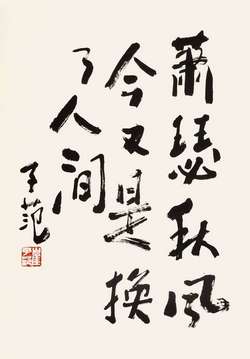 萧瑟秋风
今又是换
了人间
子范